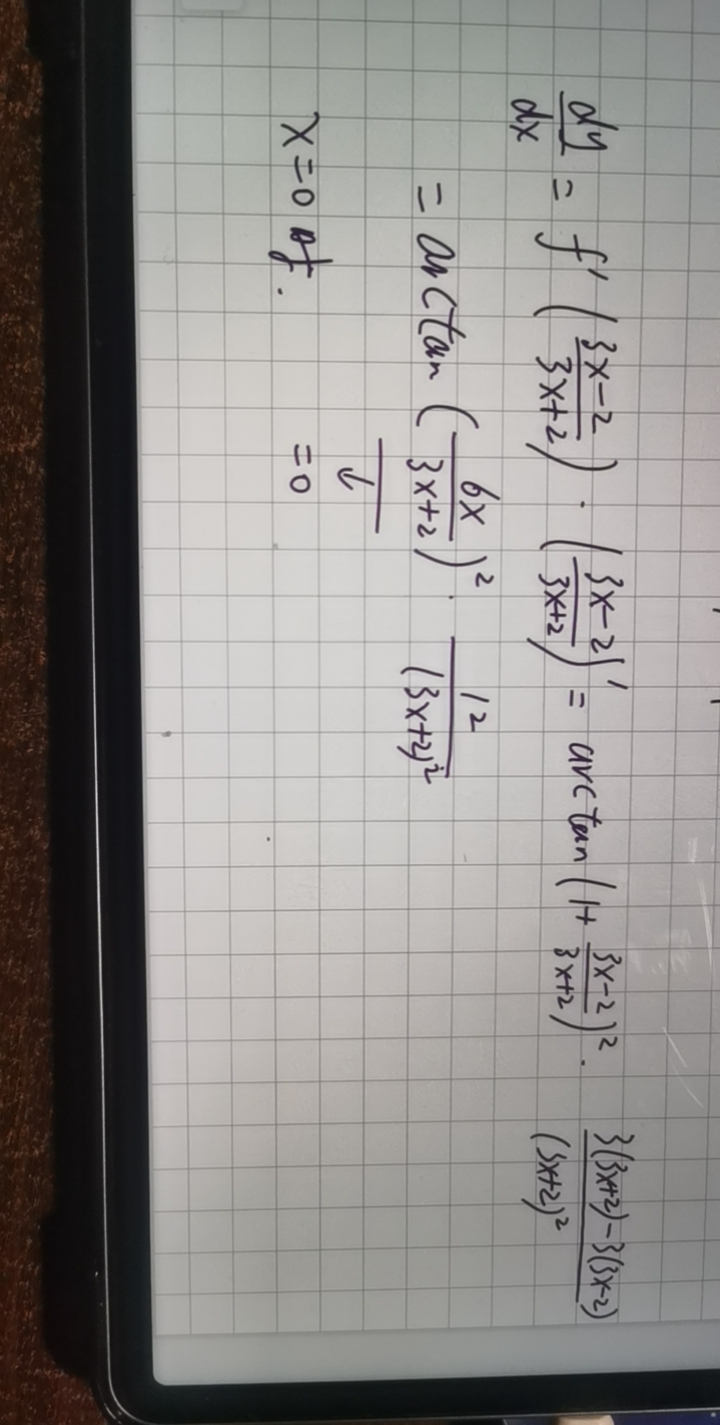 dy/dx = f'((3x-2)/(3x+2)) · ((3x-2)/(3x+2))' = arctan(1+(3x-2)/(3x+2))² · (3(3x+2)-3(3x-2))/(3x+2)²
= arctan(6x/(3x+2))² · 12/(3x+2)²
↓
x=0 时. =0